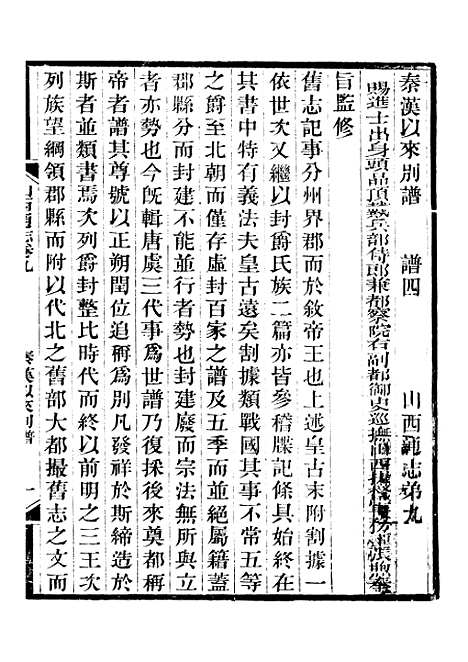 秦漢以來別譜　譜四　山西通志第九
賜進士出身頭品頂戴兵部侍郎兼都察院右副都御史巡撫山西
旨監修
舊志記事分州界郡而於敘帝王也上遞皇古末附割據一
依世次又繼以封爵氏族二篇亦皆參稽牒記條具始終在
其書中特有義法夫皇古遠矣割據類戰國其事不常五等
之爵至北朝而僅存虛封百家之譜及五季而並絕屬籍蓋
郡縣分而封建不能並行者也封建廢而宗法無所與立
者亦勢也今旣輯唐虞三代事爲世譜乃復採後來奠都稱
帝者譜其尊號以正朔閏位稍爲別凡發祥於斯締造於
斯者並類書焉次列爵封整比時代而終以前明之三王次
列族望綱領郡縣而附以代北之舊部大都撮舊志之文而
秦漢以來別譜　一